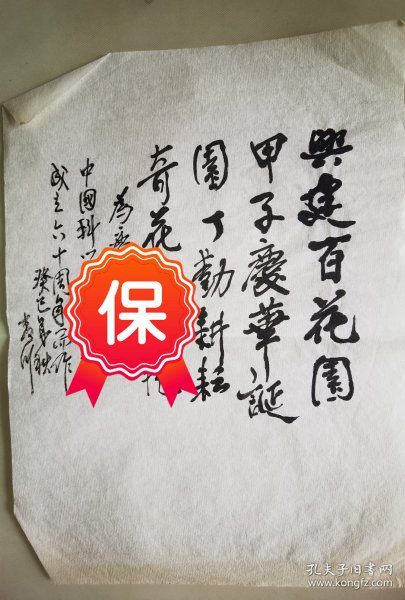 興建百花園
甲子慶華誕
園丁勤耕耘
奇花
為
中國科
成立六十周年而作
癸巳暮秋
保
孔夫子旧书网
www.kongfz.com